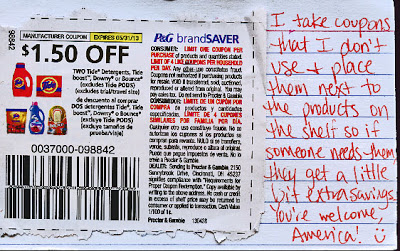 MANUFACTURER COUPON EXPIRES 05/31/13
$1.50 OFF
TWO Tide® Detergents, Tide
boost™, Downy® or Bounce®
(excludes Tide PODS)
(excludes trial/travel size)
de descuento al comprar
DOS detergentes Tide®, Tide
boost™, Downy® o Bounce®
(excluye Tide PODS)
(excluye tamaños de
prueba/viaje)
98842
0037000-098842
P&G brandSAVER
CONSUMER: LIMIT ONE COUPON PER
PURCHASE of products and quantities stated.
LIMIT OF 4 LIKE COUPONS PER HOUSEHOLD
PER DAY. Any other use constitutes fraud.
Coupons not authorized if purchasing products
for resale. VOID if transferred, sold, auctioned,
reproduced or altered from original. You may
pay sales tax. Do not send to Procter & Gamble.
CONSUMIDOR: LIMITE DE UN CUPÓN POR
COMPRA de productos y cantidades
especificadas. LIMITE DE 4 CUPONES
SIMILARES POR FAMILIA POR DÍA.
Cualquier otro uso constituye fraude. No se
autorizan los cupones si los productos se
compran para reventa. NULO si se transfiere,
vende, subasta, reproduce o altera el original.
Puede que pagues impuestos de venta. No lo
envíe a Procter & Gamble.
DEALER: Sending to Procter & Gamble, 2150
Sunnybrook Drive, Cincinnati, OH 45237
signifies compliance with "Requirements for
Proper Coupon Redemption." Copy available by
writing to the above address. No cash or credit
in excess of shelf price may be returned to
consumer or applied to transaction. Cash Value
1/100 of 1¢.
Procter & Gamble 130428
I take coupons
that I don't
use + place
them next to
the products on
the shelf so if
someone needs them,
they get a little
bit extra savings.
You're welcome,
America! :)